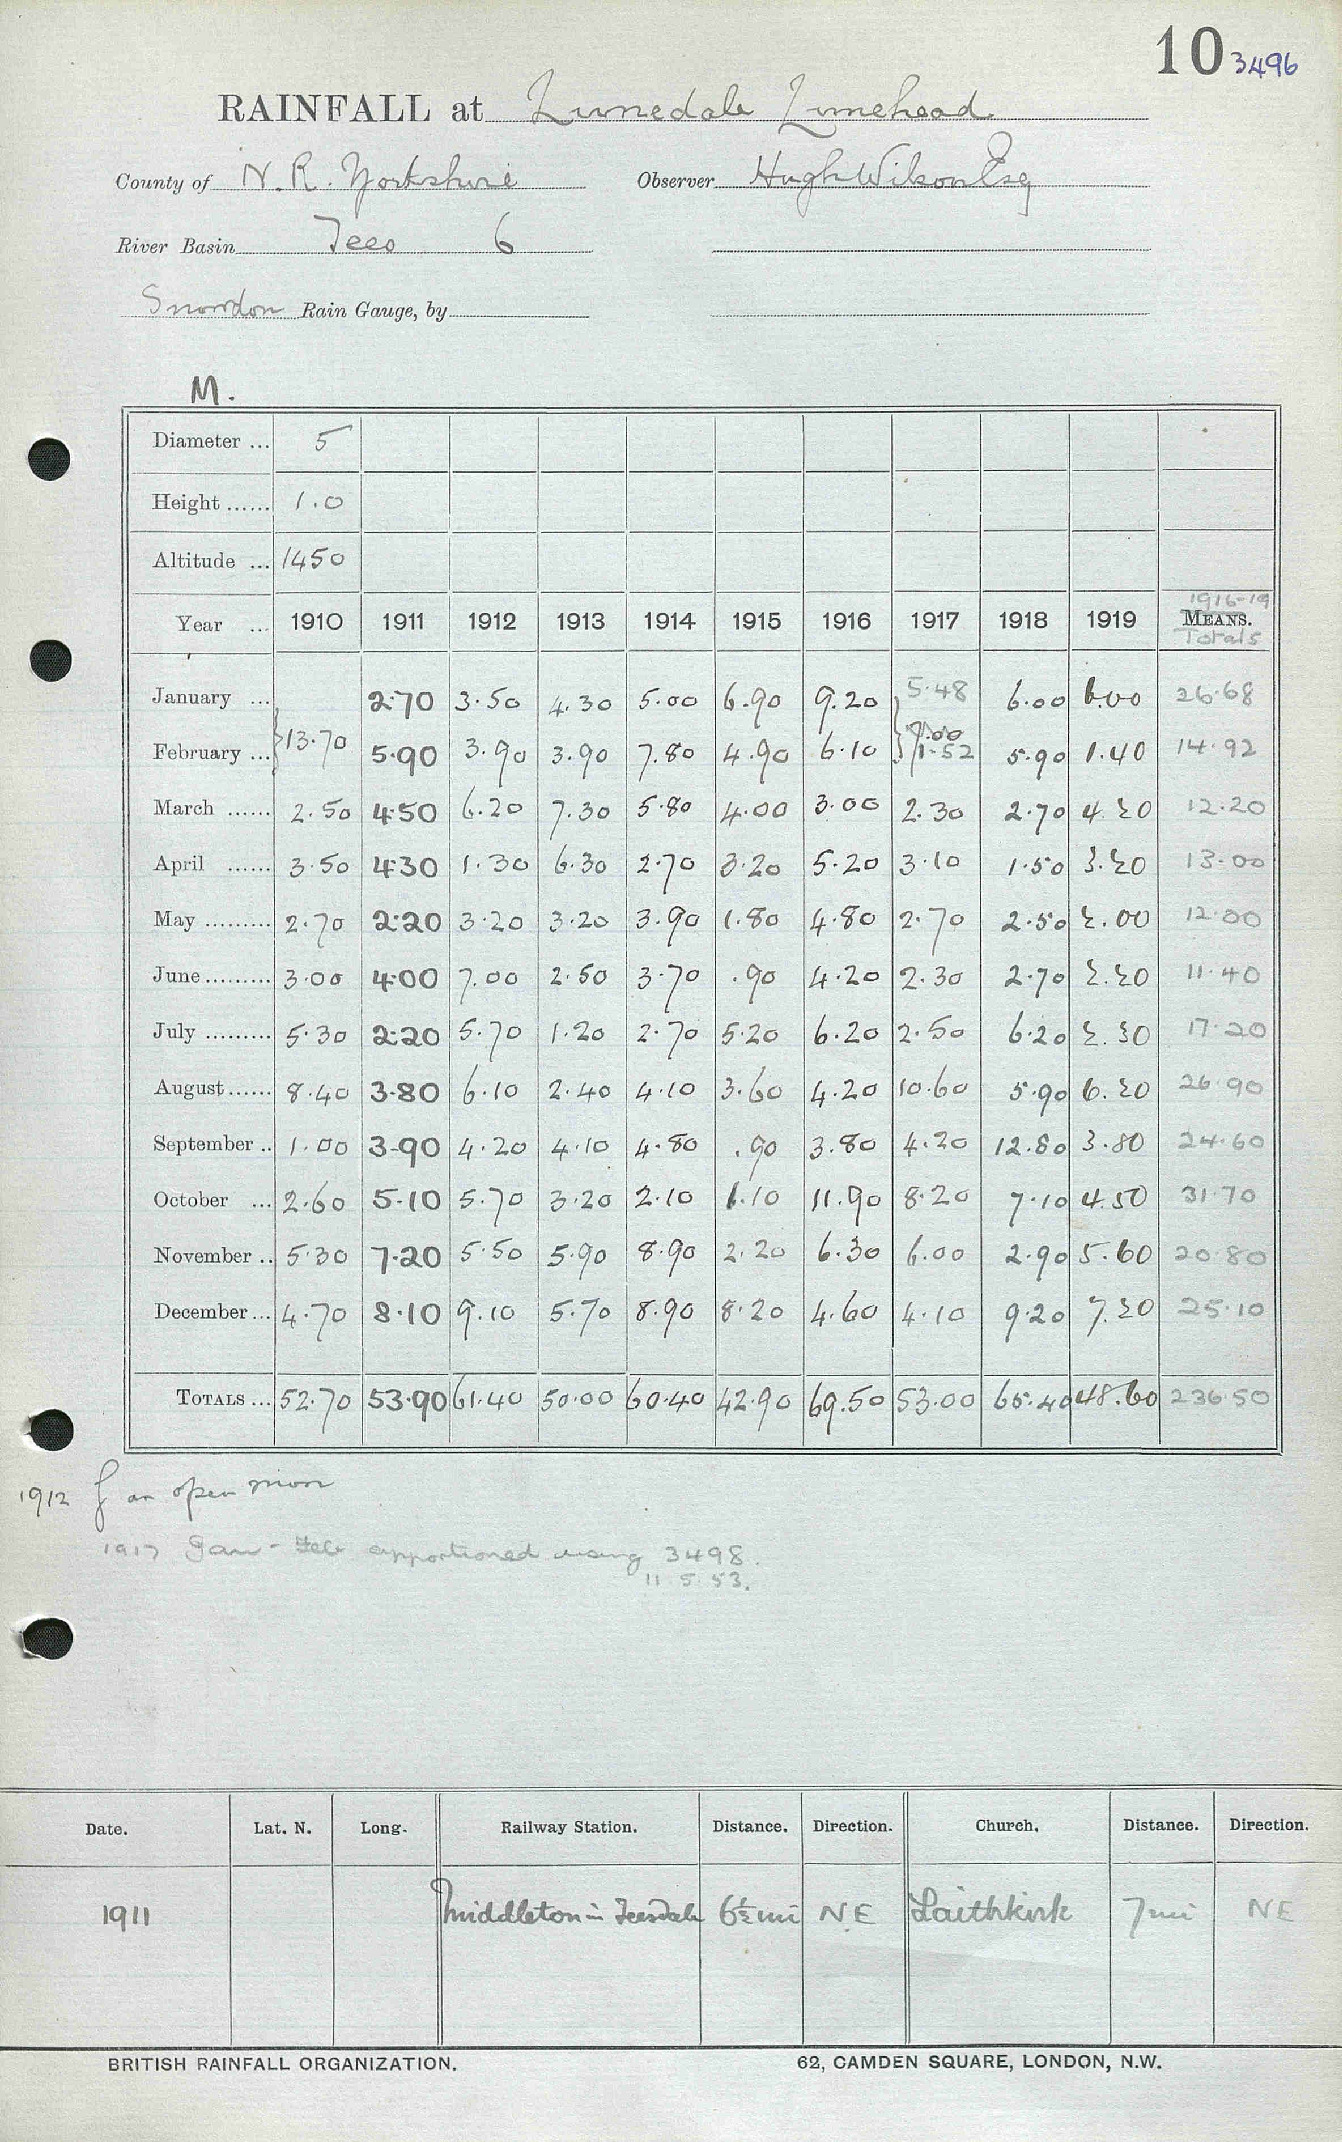 10 3496
RAINFALL at Lunedale Lunehead
County of N.R. Yorkshire Observer Hugh Wilson Esq
River Basin Tees 6
Snowdon Rain Gauge, by
M.
Diameter ... 5
Height ...... 1.0
Altitude ... 1450
1916-19
Year ... 1910 1911 1912 1913 1914 1915 1916 1917 1918 1919 MEANS.
Totals
January ... 2.70 3.50 4.30 5.00 6.90 9.20 5.48 6.00 6.00 26.68
7.00
February ... 13.70 5.90 3.90 3.90 7.80 4.90 6.10 1.52 5.90 1.40 14.92
March ...... 2.50 4.50 6.20 7.30 5.80 4.00 3.00 2.30 2.70 4.20 12.20
April ...... 3.50 4.30 1.30 6.30 2.70 3.20 5.20 3.10 1.50 3.20 13.00
May ......... 2.70 2.20 3.20 3.20 3.90 1.80 4.80 2.70 2.50 2.00 12.00
June ......... 3.00 4.00 7.00 2.50 3.70 .90 4.20 2.30 2.70 2.20 11.40
July ......... 5.30 2.20 5.70 1.20 2.70 5.20 6.20 2.50 6.20 2.30 17.20
August ...... 8.40 3.80 6.10 2.40 4.10 3.60 4.20 10.60 5.90 6.20 26.90
September .. 1.00 3.90 4.20 4.10 4.80 .90 3.80 4.20 12.80 3.80 24.60
October ... 2.60 5.10 5.70 3.20 2.10 1.10 11.90 8.20 7.10 4.50 31.70
November .. 5.30 7.20 5.50 5.90 8.90 2.20 6.30 6.00 2.90 5.60 20.80
December ... 4.70 8.10 9.10 5.70 8.90 8.20 4.60 4.10 9.20 7.20 25.10
TOTALS ... 52.70 53.90 61.40 50.00 60.40 42.90 69.50 53.00 65.40 48.60 236.50
1912 f an open moor
1917 Jan - Feb apportioned using 3498.
11.5.53.
Date. Lat. N. Long. Railway Station. Distance. Direction. Church. Distance. Direction.
1911 Middleton in Teesdale 6½ mi N.E Laithkirk 7 mi NE
BRITISH RAINFALL ORGANIZATION. 62, CAMDEN SQUARE, LONDON, N.W.